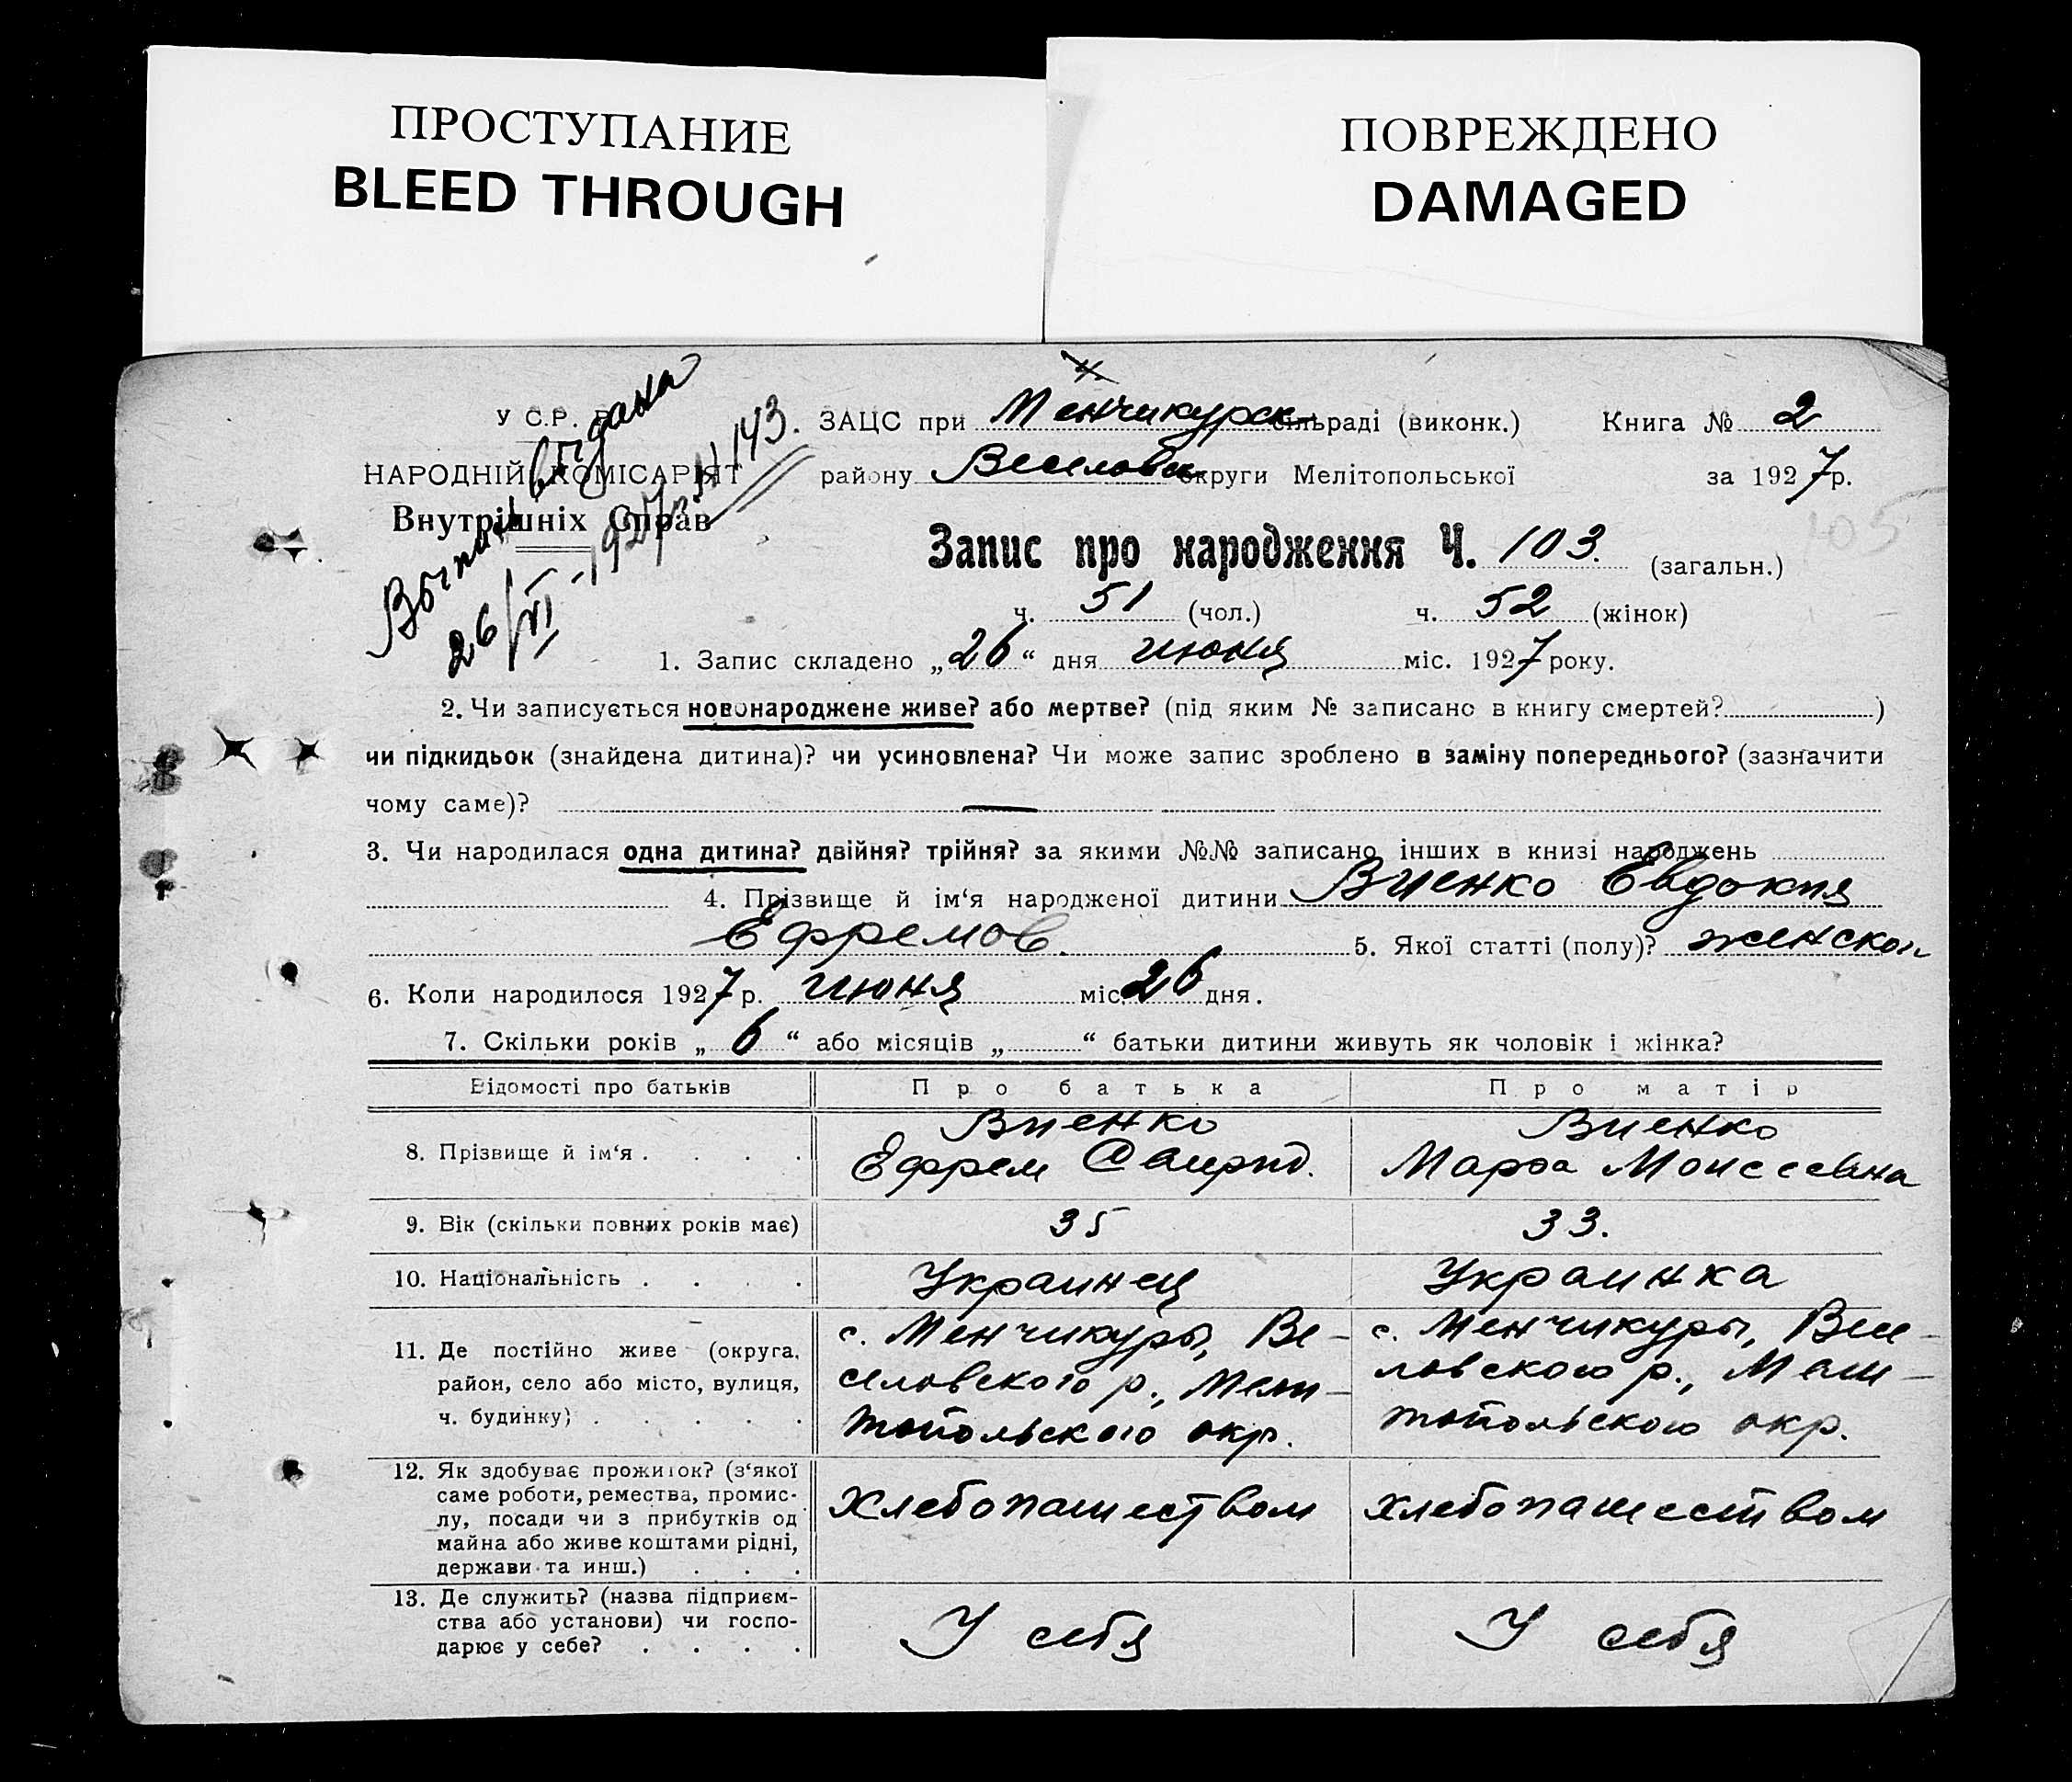 ПРОСТУПАНИЕ
BLEED THROUGH
ПОВРЕЖДЕНО
DAMAGED
У.С.Р.Р.
НАРОДНІЙ КОМІСАРІЯТ
Внутрішніх Справ
Выпись выдана
26/VI-1927 р. № 143.
ЗАЦС при Менчикурск. сільраді (виконк.) Книга № 2
району Веселовск округи Мелітопольської за 1927 р.
105
Запис про народження Ч. 103. (загальн.)
ч. 51 (чол.) ч. 52 (жінок)
1. Запис складено „26“ дня июня міс. 1927 року.
2. Чи записується новонароджене живе? або мертве? (під яким № записано в книгу смертей? )
чи підкидьок (знайдена дитина)? чи усиновлена? Чи може запис зроблено в заміну попереднього? (зазначити
чому саме)? —
3. Чи народилася одна дитина? двійня? трійня? за якими №№ записано інших в книзі народжень
4. Прізвище й ім‘я народженої дитини Виенко Евдокия
Ефремов. 5. Якої статті (полу)? женской
6. Коли народилося 1927 р. июня міс. 26 дня.
7. Скільки років „6“ або місяців „ “ батьки дитини живуть як чоловік і жінка?
Відомості про батьків Про батька Про матір
8. Прізвище й ім‘я . . . . Виенко Виенко
Ефрем Марфа Моисеевна
9. Вік (скільки повних років має) 35 33.
10. Національність . . . . Украинец Украинка
11. Де постійно живе (округа, с. Менчикуры, Ве- с. Менчикуры, Весе-
район, село або місто, вулиця, селовского р., Мели- ловского р., Мели-
ч. будинку) . . . . . топольского окр. топольского окр.
12. Як здобуває прожиток? (з‘якої
саме роботи, ремества, промис- хлебопашеством хлебопашеством
лу, посади чи з прибутків од
майна або живе коштами рідні,
держави та инш.) . . .
13. Де служить? (назва підприєм-
ства або установи) чи госпо- У себя У себя
дарює у себе? . . . .